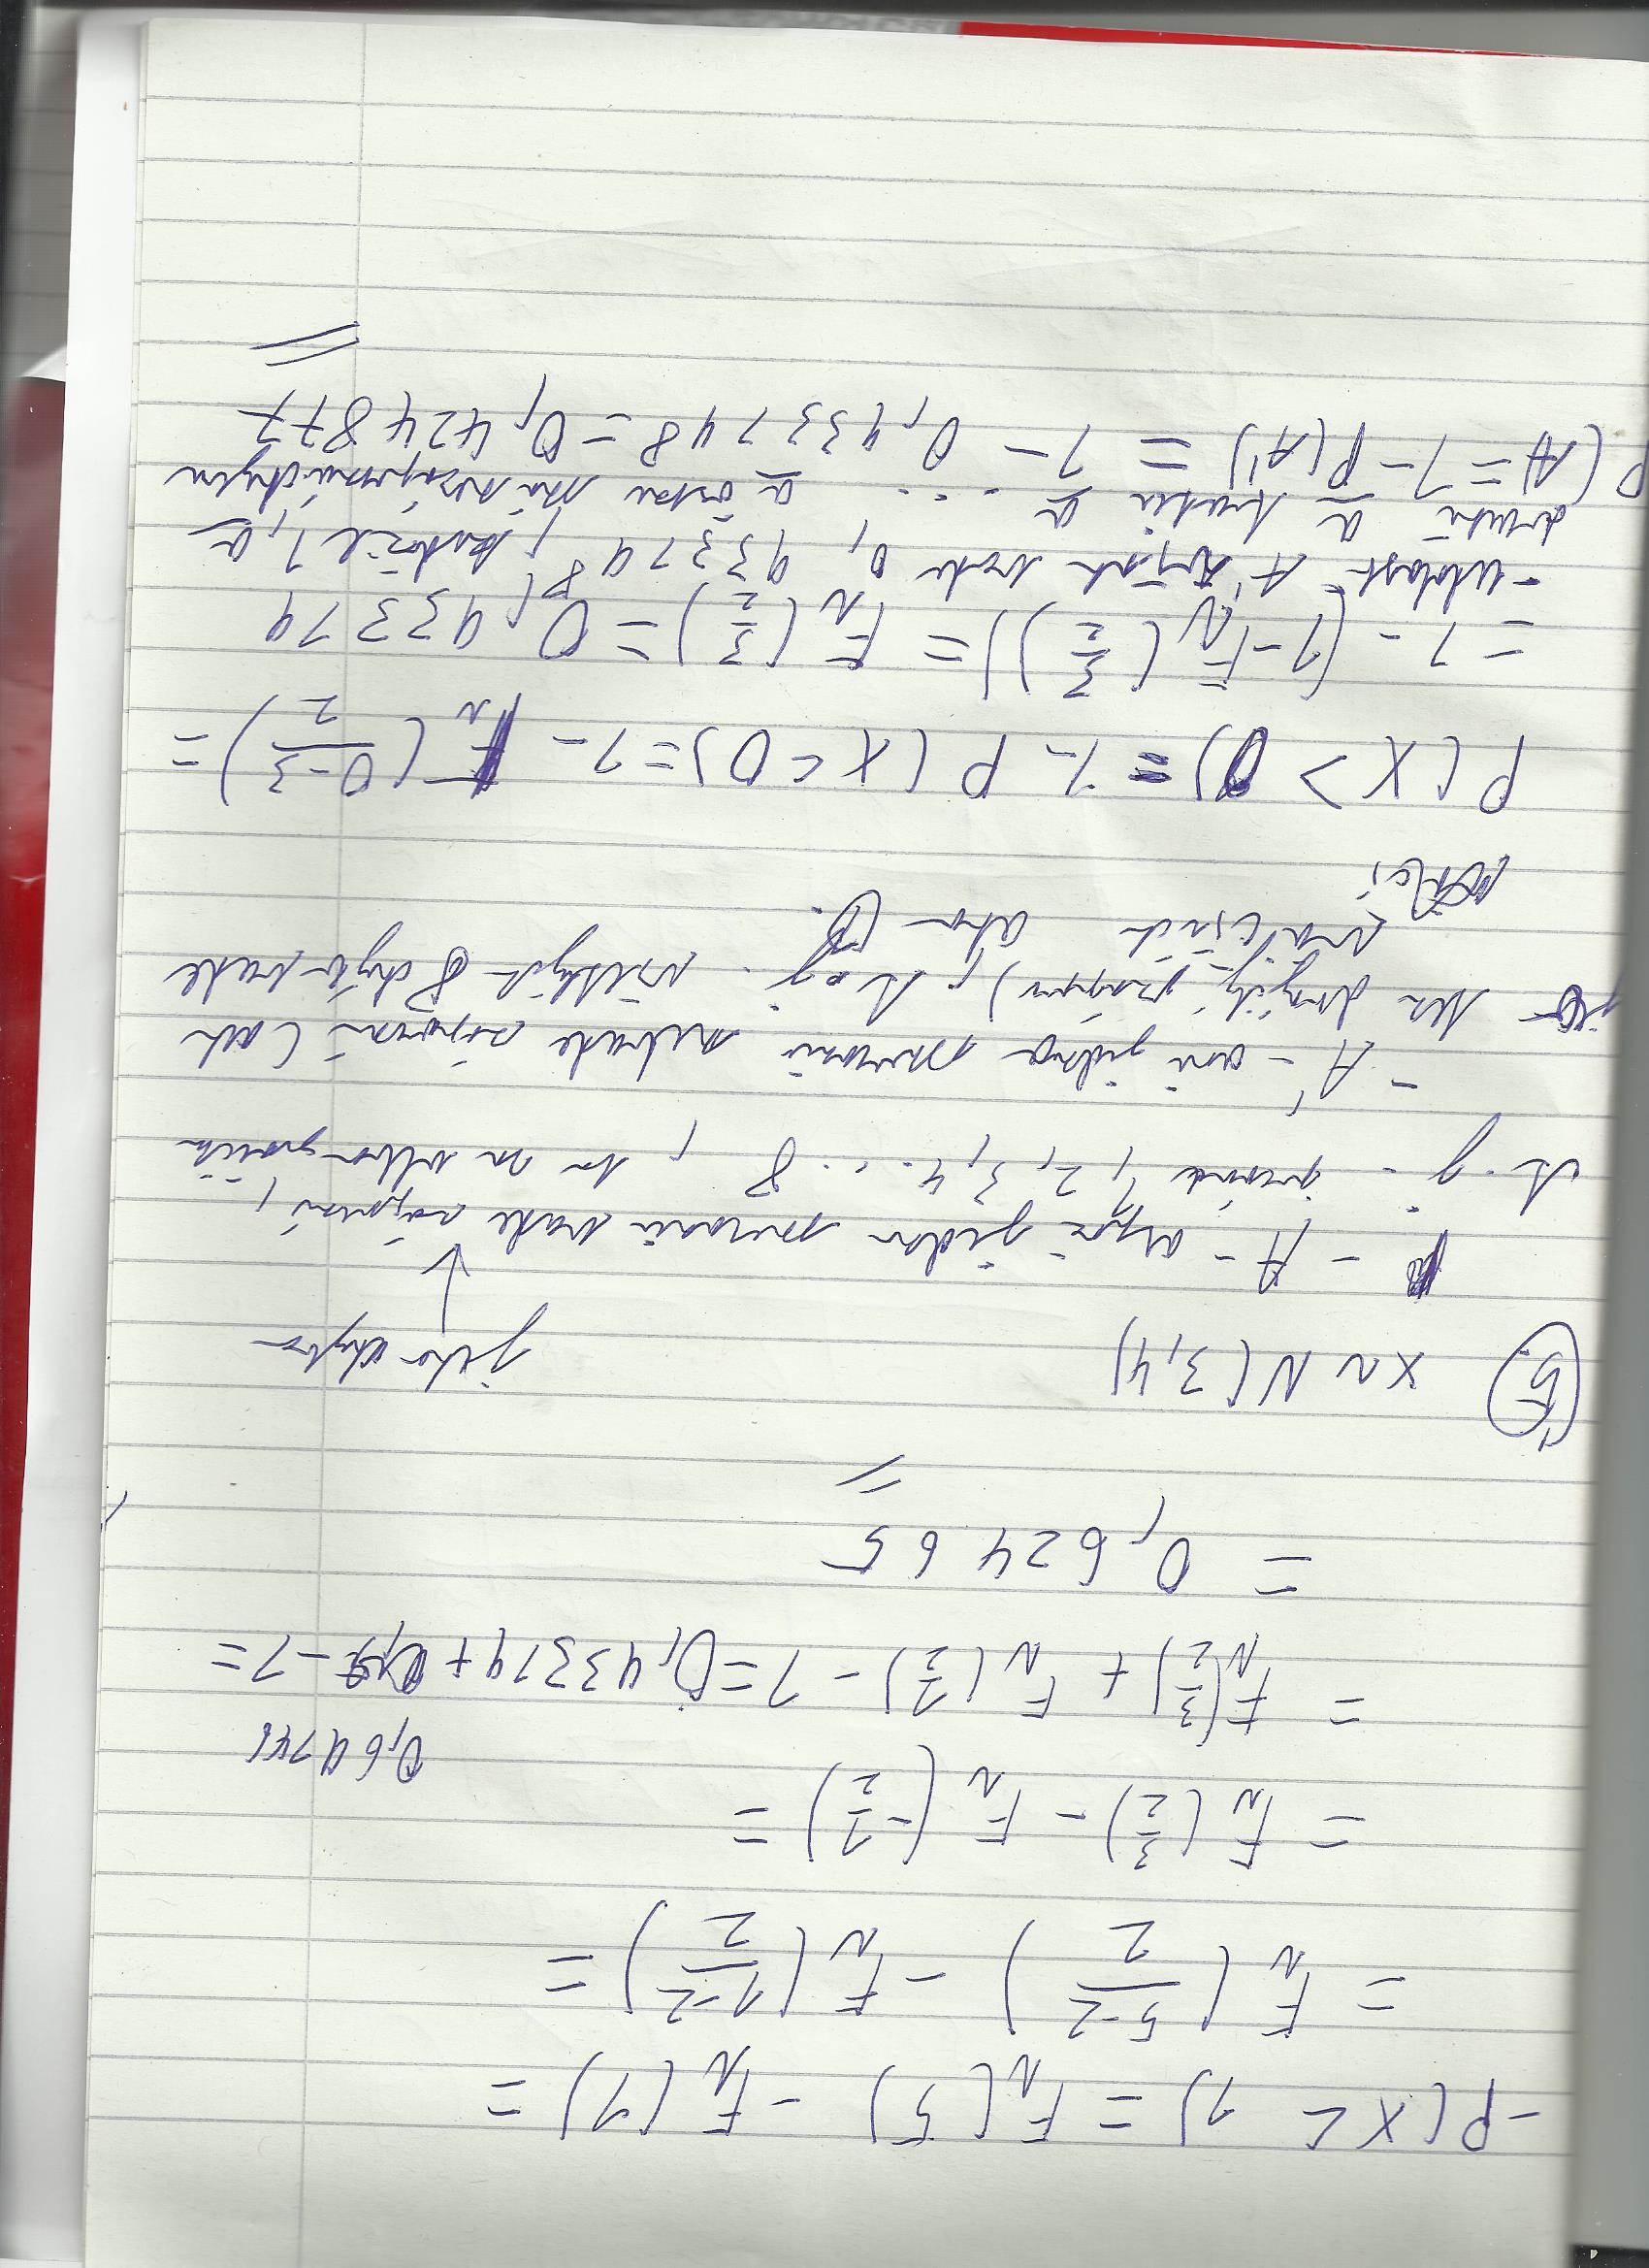 -P(X < 1) = F_N(5) - F_N(1) =
= F_N((5-2)/2) - F_N((1-2)/2) =
= F_N(3/2) - F_N(-1/2) =
0,69146
= F_N(3/2) + F_N(1/2) - 1 = 0,93319 + - 1 =
= 0,62465
5. X ~ N(3,4)
jeho chyba
- A - aspoň jedno meranie bude záporné,
t.j. práve 1, 2, 3, 4 ... 8, to sa
- A' - ani jedno meranie nebude záporné (ach
ten dvojitý zápor), t.j. všetkých 8 chýb bude
väčších ako 0.
P(X > 0) = 1 - P(X < 0) = 1 - F_N((0-3)/2) =
= 1 - (1 - F_N(3/2)) = F_N(3/2) = 0,93319
- udalosť A' bude 0,93319^8, keďže 1, a
druhé a tretie a ... a ôsme má nezápornú chybu
P(A) = 1 - P(A') = 1 - 0,93319^8 = 0,424877